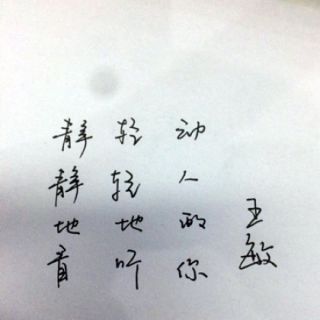 静静地看
轻轻地听
动人的你
王敏